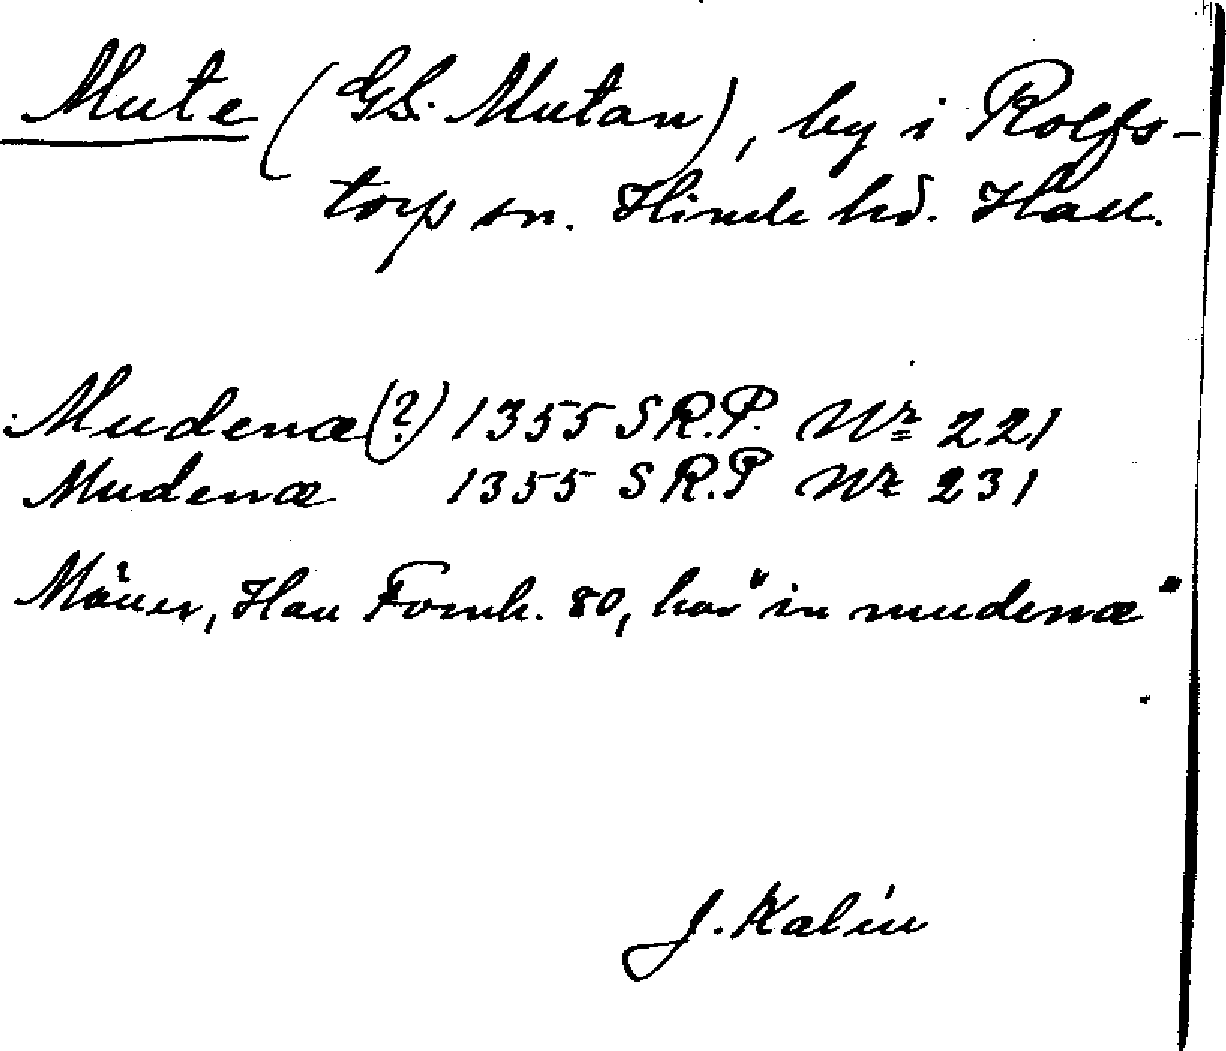 Mute (GS. Mutan), by i Rolfs-
torp sn. Himle hd. Hall.
Mudenæ(?) 1355 SR.P. Nr 221
Mudenæ 1355 SR.P Nr 231
Möller, Hall Fornh. 80, har "in mudenæ"
J. Kalén